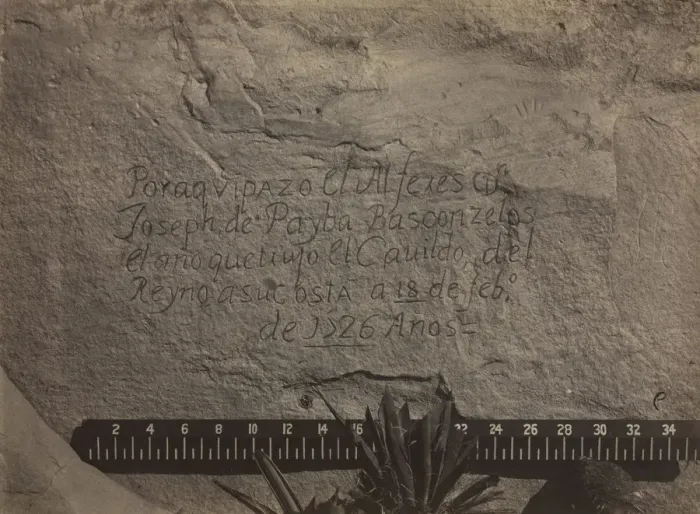 Por aqvi pazo el Alferes Dn
Joseph de Payba Basconzelos
el año que trujo el Cauildo, del
Reyno a su costa a 18 de feb.o
de 1526 Años
2 4 6 8 10 12 14 16 22 24 26 28 30 32 34